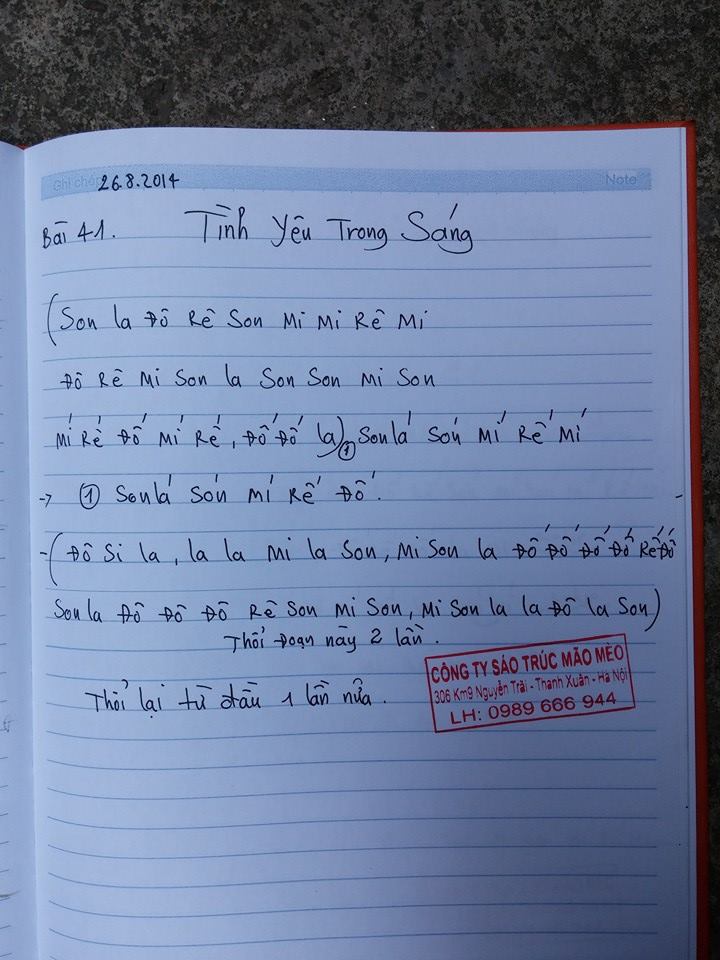 Ghi chép 26.8.2014 Note
Bài 41. Tình Yêu Trong Sáng
(Son la Đô Rê Son Mi Mi Rê Mi
Đô Rê Mi Son la Son Son Mi Son
Mí Rế Đố Mí Rế, Đố Đố lá)① Son lá Són Mí Rế Mí
→ ① Son lá Són Mí Rế Đố.
- (Đô Si la, la la Mi la Son, Mi Son la Đố Đố Đố Đố Rế Đố
Son la Đô Đô Đô Rê Son Mi Son, Mi Son la la Đô la Son)
Thổi đoạn này 2 lần.
Thổi lại từ đầu 1 lần nữa.
CÔNG TY SÁO TRÚC MÃO MÈO
306 Km9 Nguyễn Trãi - Thanh Xuân - Hà Nội
LH: 0989 666 944